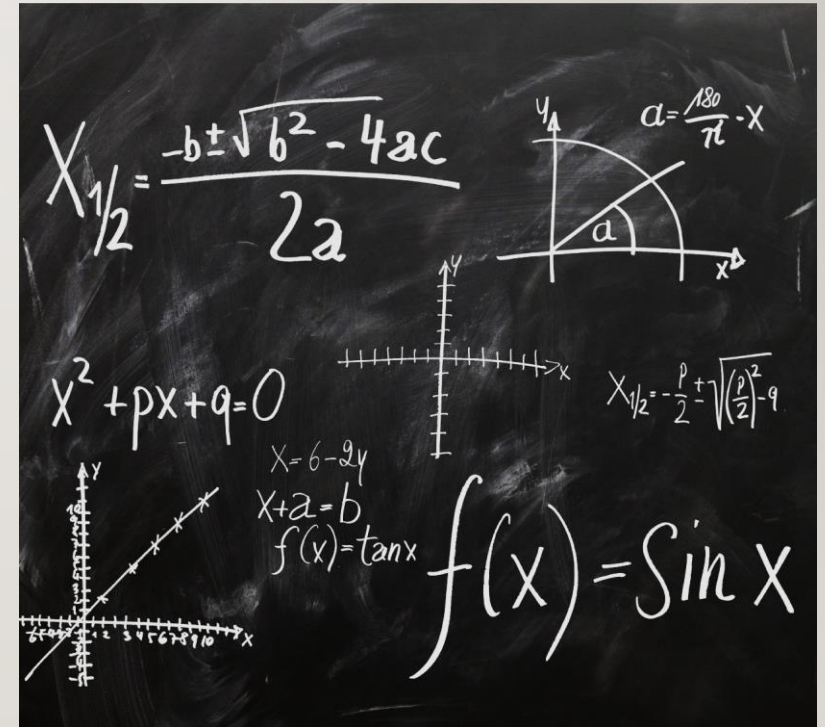 X₁/₂ = (-b ± √(b² - 4ac)) / 2a
y
a = 180/π · X
a
x
y
x
x² + px + q = 0
X₁/₂ = -p/2 ± √((p/2)² - q)
X = 6 - 2y
X + a = b
f(x) = tanx
f(x) = Sin x
y
10
1 2 3 4 5 6 7 8 9 10
x